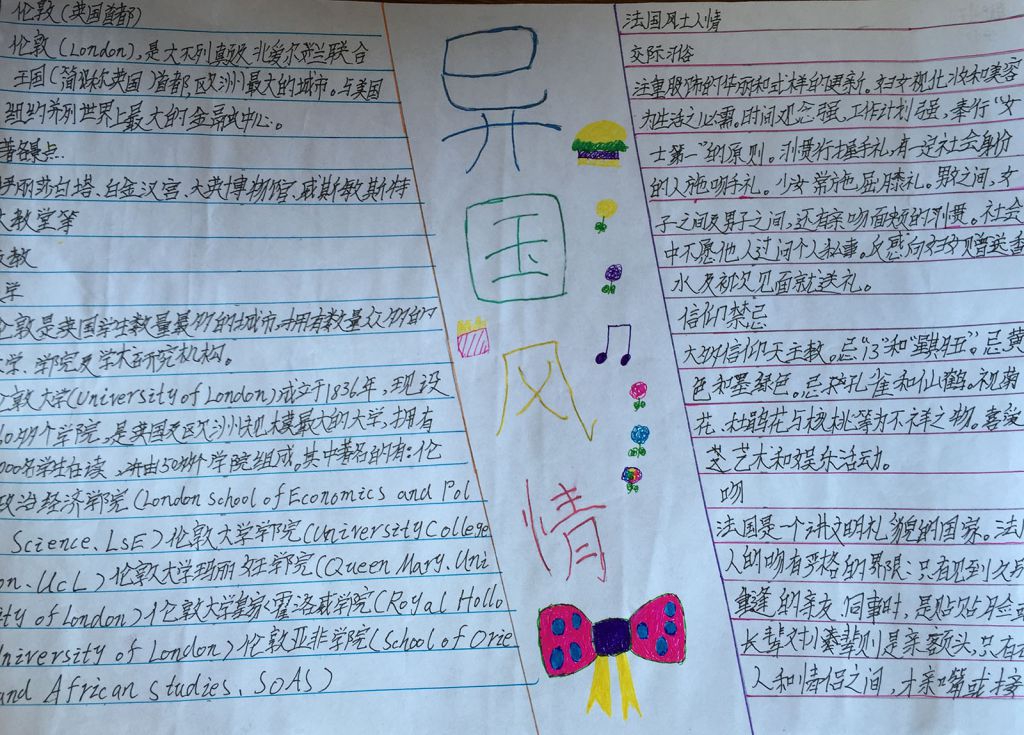 伦敦(英国首都)
伦敦(London),是大不列颠及北爱尔兰联合
王国(简称英国)首都,欧洲最大的城市。与美国
纽约并列世界上最大的金融中心。
著名景点
丽莎白塔、白金汉宫、大英博物馆、威斯敏斯特
大教堂等
教
学
伦敦是英国学生数量最多的城市,并拥有数量众多的
大学、学院及学术研究机构。
伦敦大学(University of London)成立于1836年,现设
多个学院,是英国及欧洲规模最大的大学,拥有
000名学生在读,并由50多个学院组成。其中著名的有:伦
政治经济学院(London school of Economics and Pol
Science、LSE)伦敦大学学院(University College
on、UCL)伦敦大学玛丽女王学院(Queen Mary、Uni
ty of London)伦敦大学皇家霍洛威学院(Royal Hollo
University of London)伦敦亚非学院(School of Orie
and African studies、SOAS)
异
国
风
情
法国风土人情
交际习俗
注重服饰的华丽和式样的更新。妇女视化妆和美容
为生活之必需。时间观念强,工作计划强,奉行“女
士第一”的原则。习惯行握手礼,有一定社会身份
的人施吻手礼。少女常施屈膝礼。男女之间,女
子之间及男子之间,还有亲吻面颊的习惯。社会
中不愿他人过问个人私事。反感向妇女赠送香
水及初次见面就送礼。
信仰禁忌
大多信仰天主教。忌“13”和“星期五”。忌黄
色和墨绿色。忌孔雀和仙鹤。视菊
花、杜鹃花与核桃等为不祥之物。喜爱
艺术和娱乐活动。
吻
法国是一个讲文明礼貌的国家。法
人的吻有严格的界限:只有见到久
重逢的亲友、同事时,是贴贴脸或
长辈对小辈则是亲额头,只有
人和情侣之间,才亲嘴或接